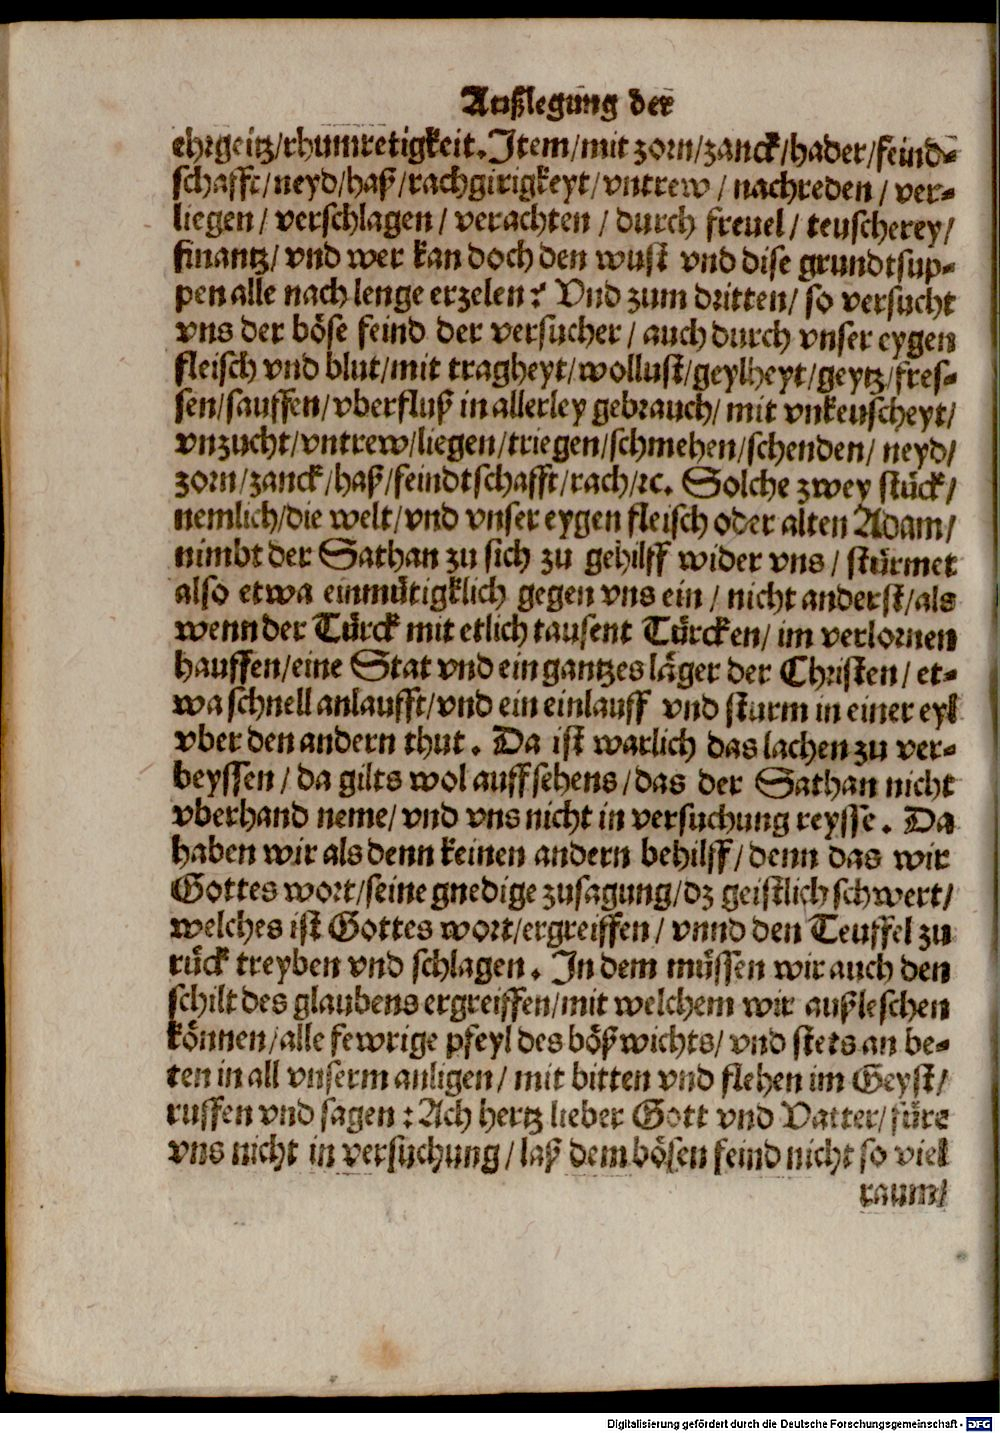 Außlegung der
ehrgeitz/rhumretigkeit. Item/mit zorn/zanck/hader/feind-
schafft/neyd/haß/rachgirigkeyt/vntrew / nachreden / ver-
liegen / verschlagen / verachten / durch freuel / teuscherey/
finantz/ vnd wer kan doch den wust vnd dise grundtsup-
pen alle nach lenge erzelen? Vnd zum dritten/ so versucht
vns der böse feind der versucher / auch durch vnser eygen
fleisch vnd blut/mit tragheyt/wollust/geylheyt/geytz/fres-
sen/sauffen/vberfluß in allerley gebrauch/ mit vnkeuscheyt/
vnzucht/vntrew/liegen/triegen/schmehen/schenden/ neyd/
zorn/zanck/haß/feindtschafft/rach/ꝛc. Solche zwey stück/
nemlich/die welt/vnd vnser eygen fleisch oder alten Adam/
nimbt der Sathan zu sich zu gehilff wider vns / stürmet
also etwa einmütigklich gegen vns ein / nicht anderst/als
wenn der Türck mit etlich tausent Türcken/ im verlornen
hauffen/eine Stat vnd ein gantzes läger der Christen / et-
wa schnell anlaufft/vnd ein einlauff vnd sturm in einer eyl
vber den andern thut. Da ist warlich das lachen zu ver-
beyssen / da gilts wol auffsehens/das der Sathan nicht
vberhand neme/ vnd vns nicht in versuchung reysse. Da
haben wir als denn keinen andern behilff/denn das wir
Gottes wort/seine gnedige zusagung/dz geistlich schwert/
welches ist Gottes wort/ergreiffen/ vnnd den Teuffel zu
rück treyben vnd schlagen. In dem müssen wir auch den
schilt des glaubens ergreiffen/mit welchem wir außleschen
können/alle fewrige pfeyl des bößwichts/ vnd stets an be-
ten in all vnserm anligen/ mit bitten vnd flehen im Geyst/
ruffen vnd sagen: Ach hertz lieber Gott vnd Vatter/füre
vns nicht in versuchung/laß dem bösen feind nicht so viel
raum/
Digitalisierung gefördert durch die Deutsche Forschungsgemeinschaft - DFG